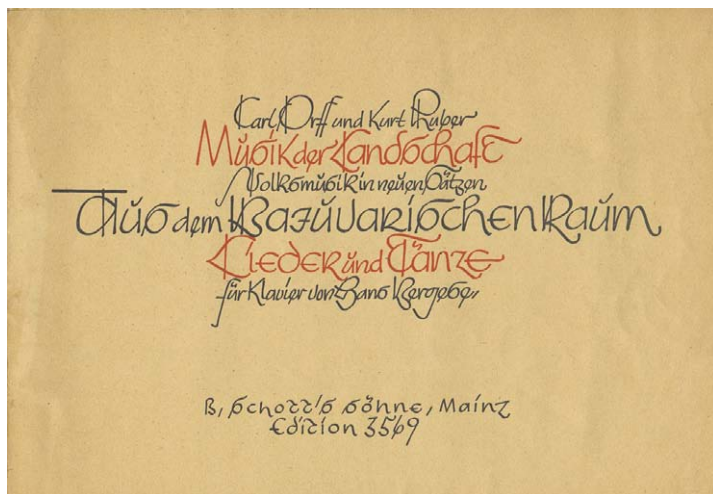 Carl Orff und Kurt Huber
Musik der Landschaft
Volksmusik in neuen Sätzen
Aus dem Bajuvarischen Raum
Lieder und Tänze
für Klavier von Hans Bergese
B, Schott's Söhne, Mainz
Edition 3569